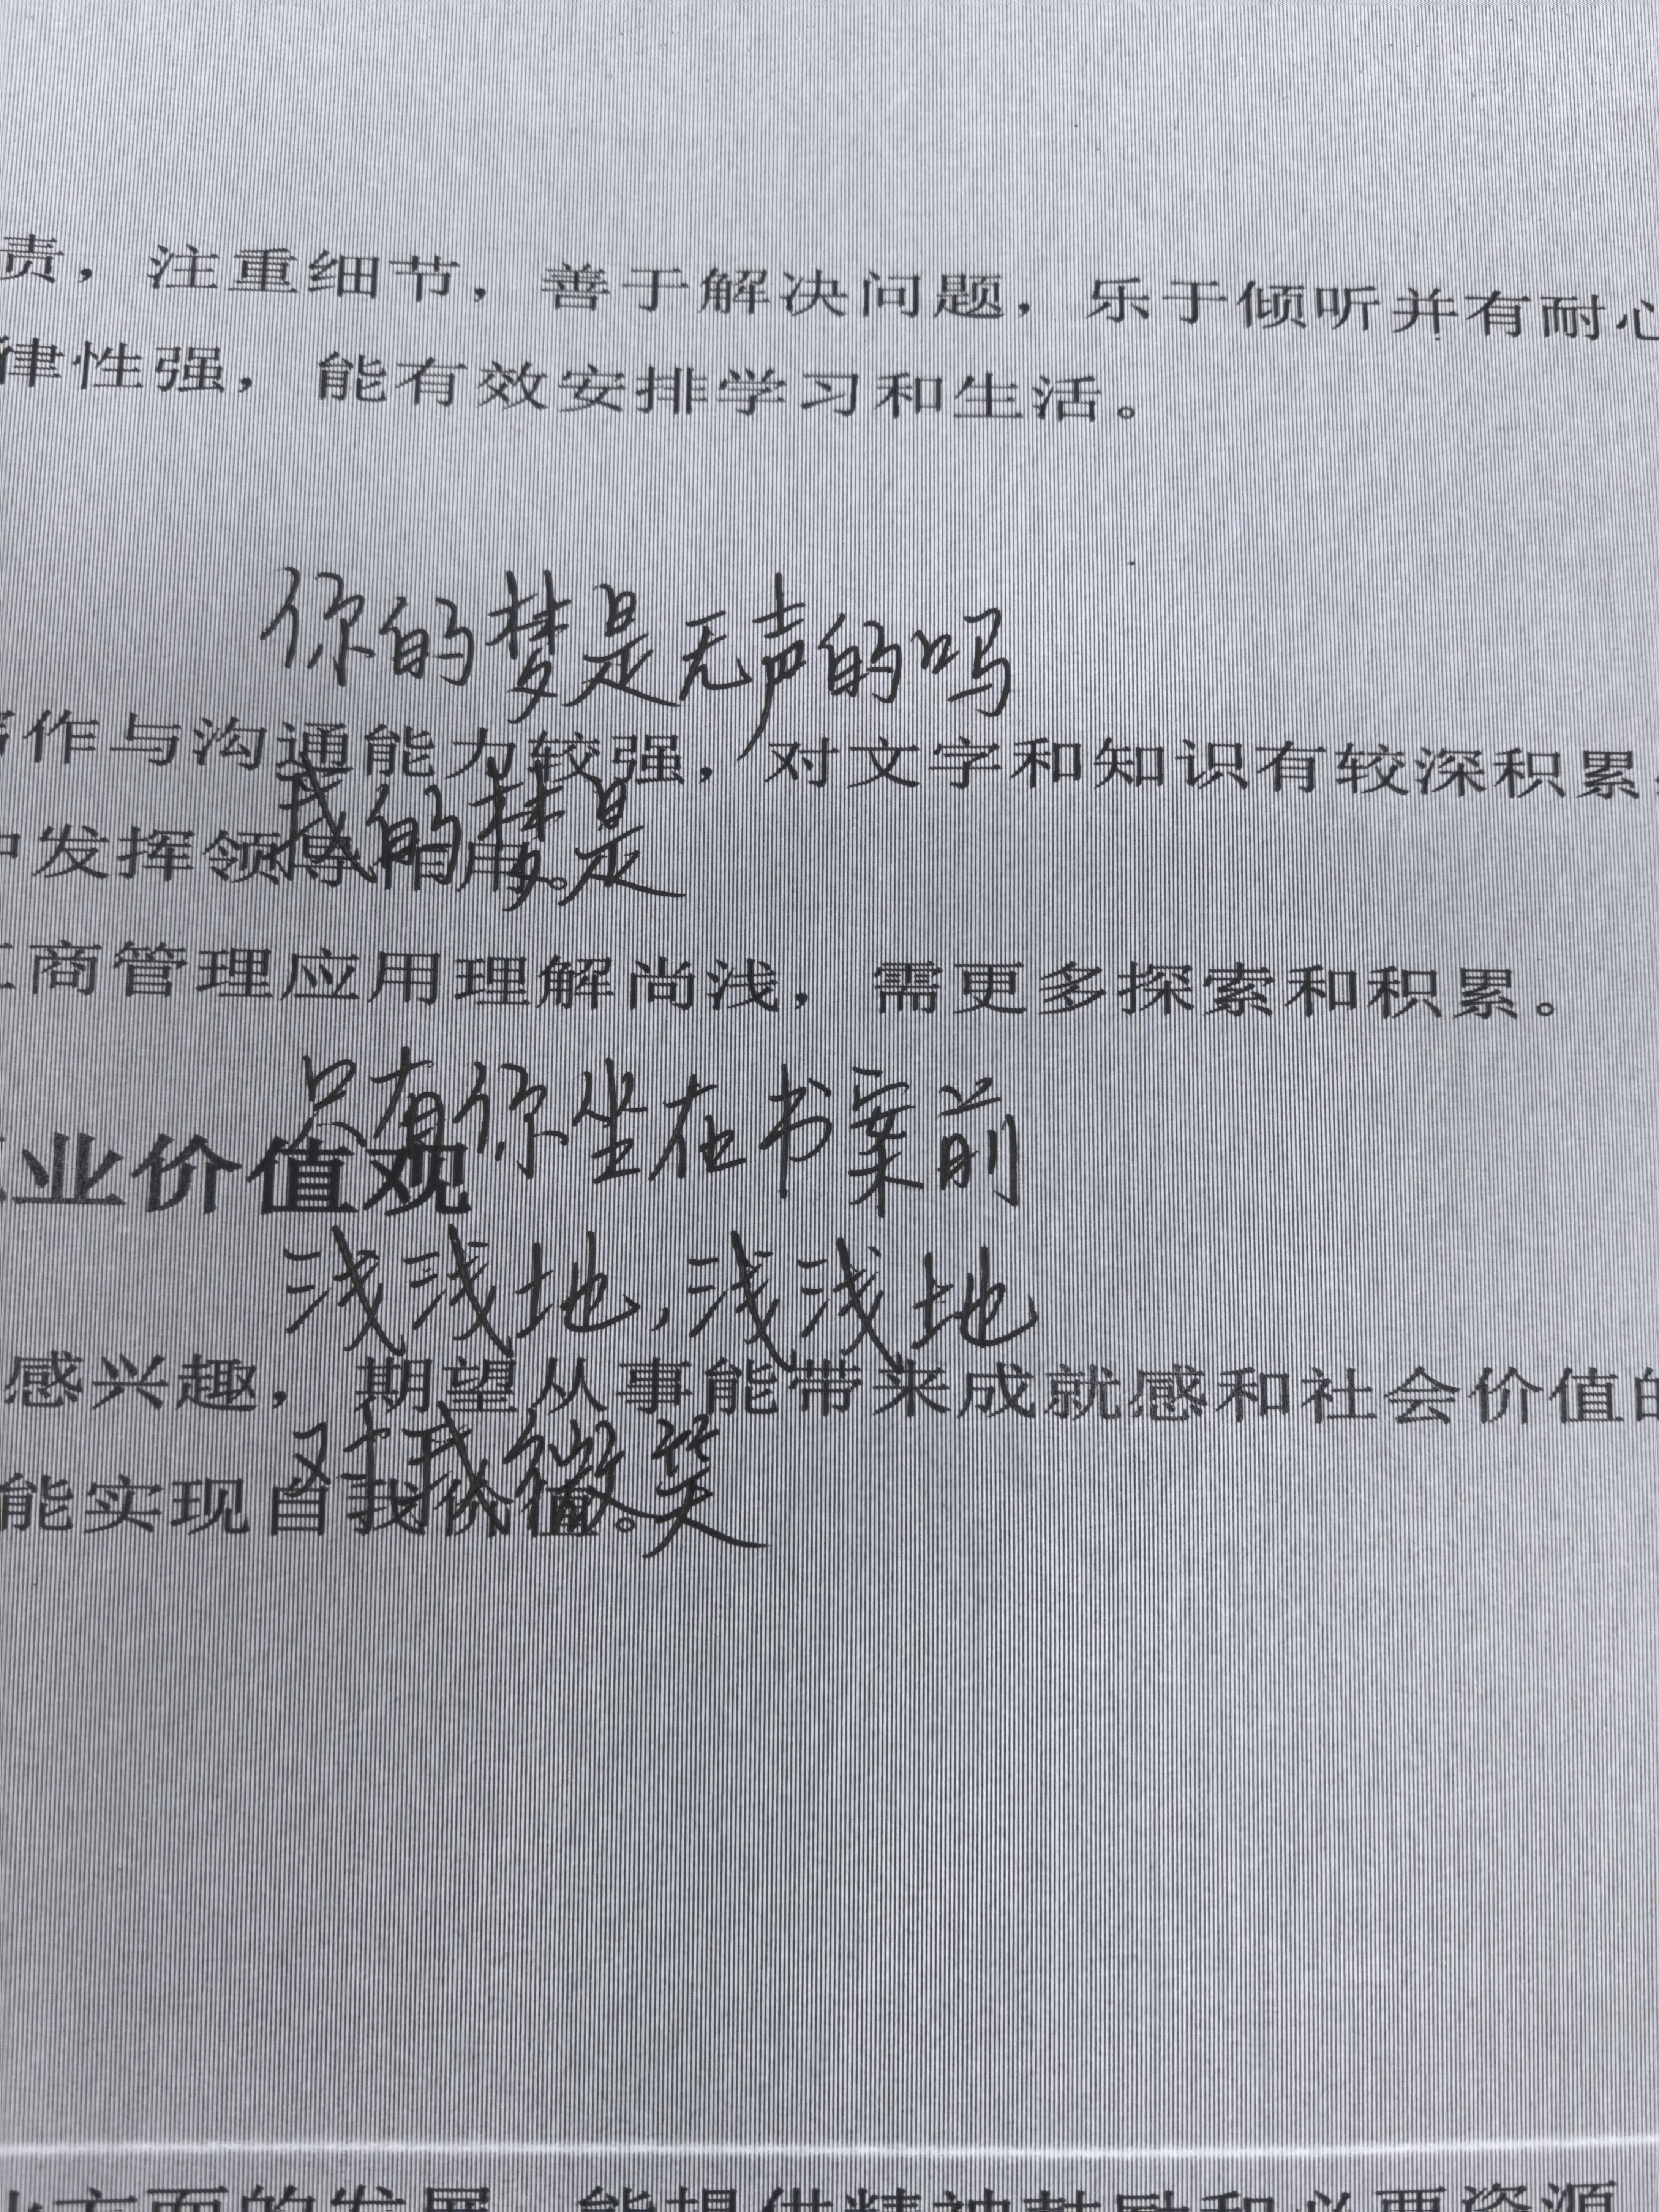 责，注重细节，善于解决问题，乐于倾听并有耐心
律性强，能有效安排学习和生活。
你的梦是无声的吗
作与沟通能力较强，对文字和知识有较深积累
我的梦是
中发挥领导作用。
商管理应用理解尚浅，需更多探索和积累。
只有你坐在书案前
业价值观
浅浅地，浅浅地
感兴趣，期望从事能带来成就感和社会价值的
对我微笑
能实现自我价值。
方面的发展，能提供精神鼓励和必要资源